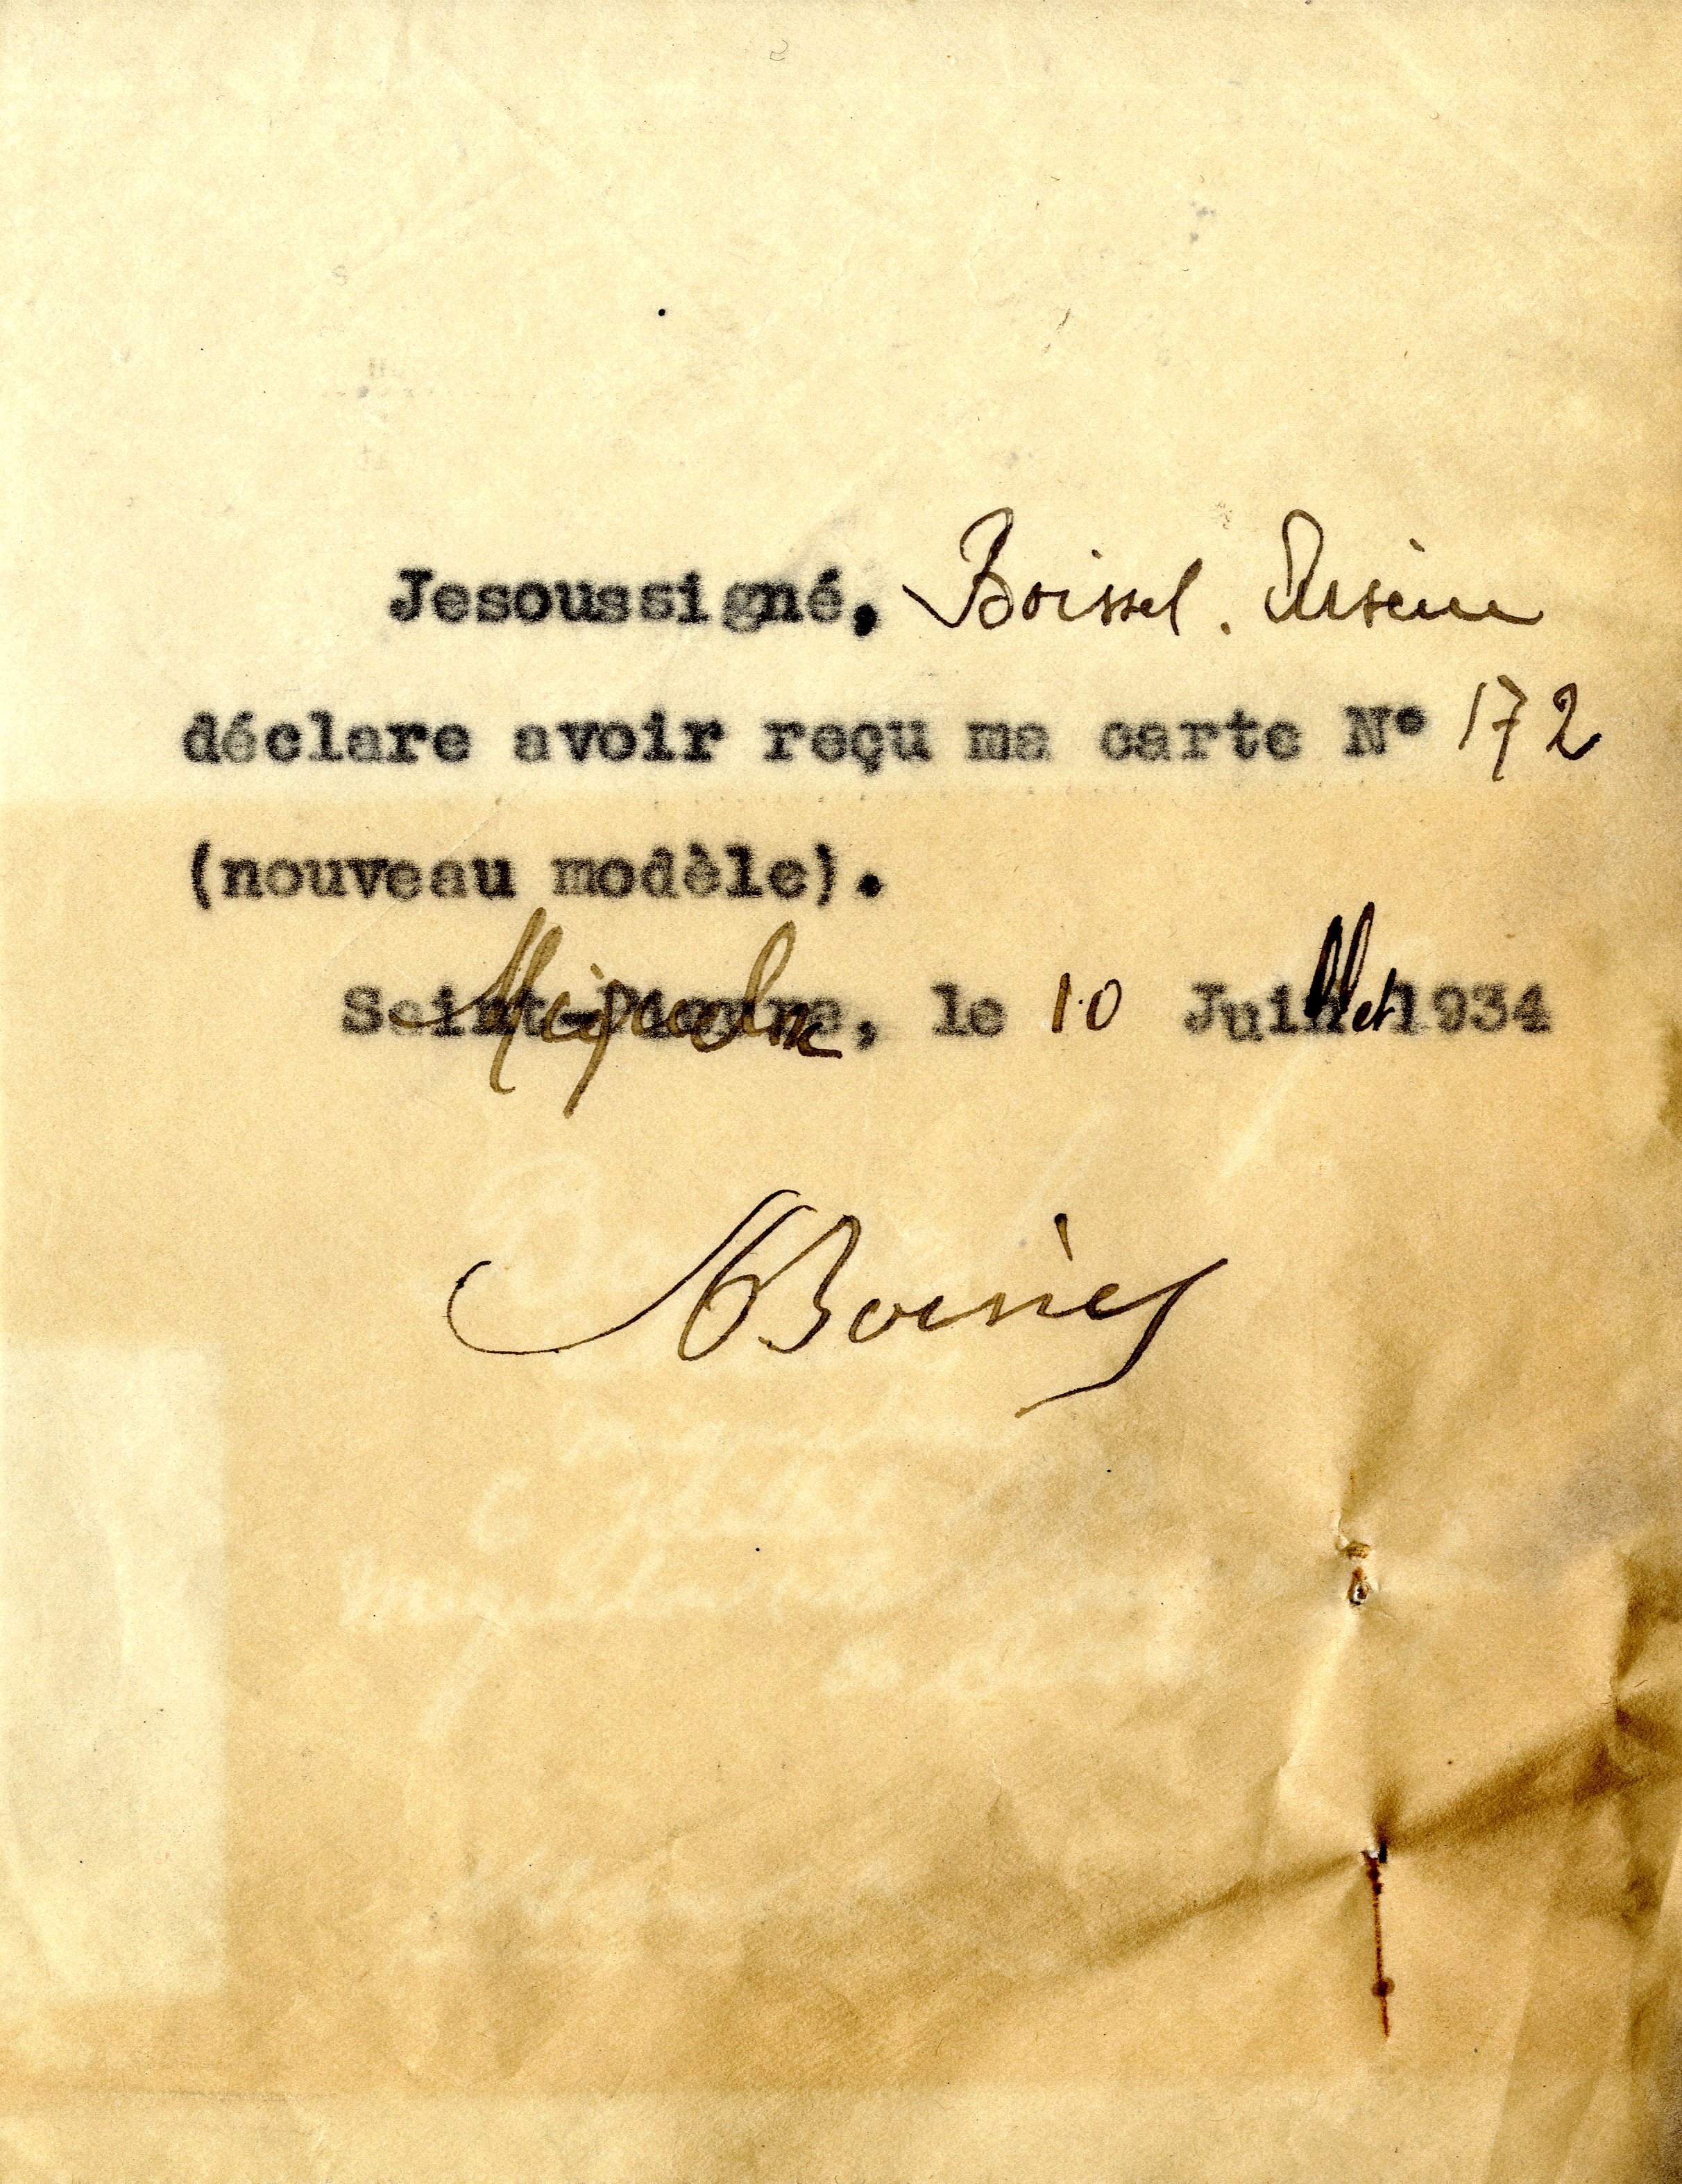 Jesoussigné, Boissel. Arsène
déclare avoir reçu ma carte N° 172
(nouveau modèle).
Saint-Pierre, Miquelon le 10 Juillet 1934
ABoissel